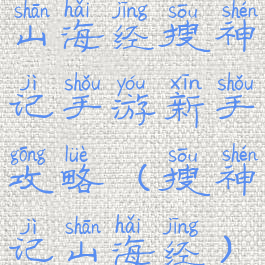 shān hǎi jīng sōu shén
山海经搜神
jì shǒu yóu xīn shǒu
记手游新手
gōng lüè sōu shén
攻略（搜神
jì shān hǎi jīng
记山海经）